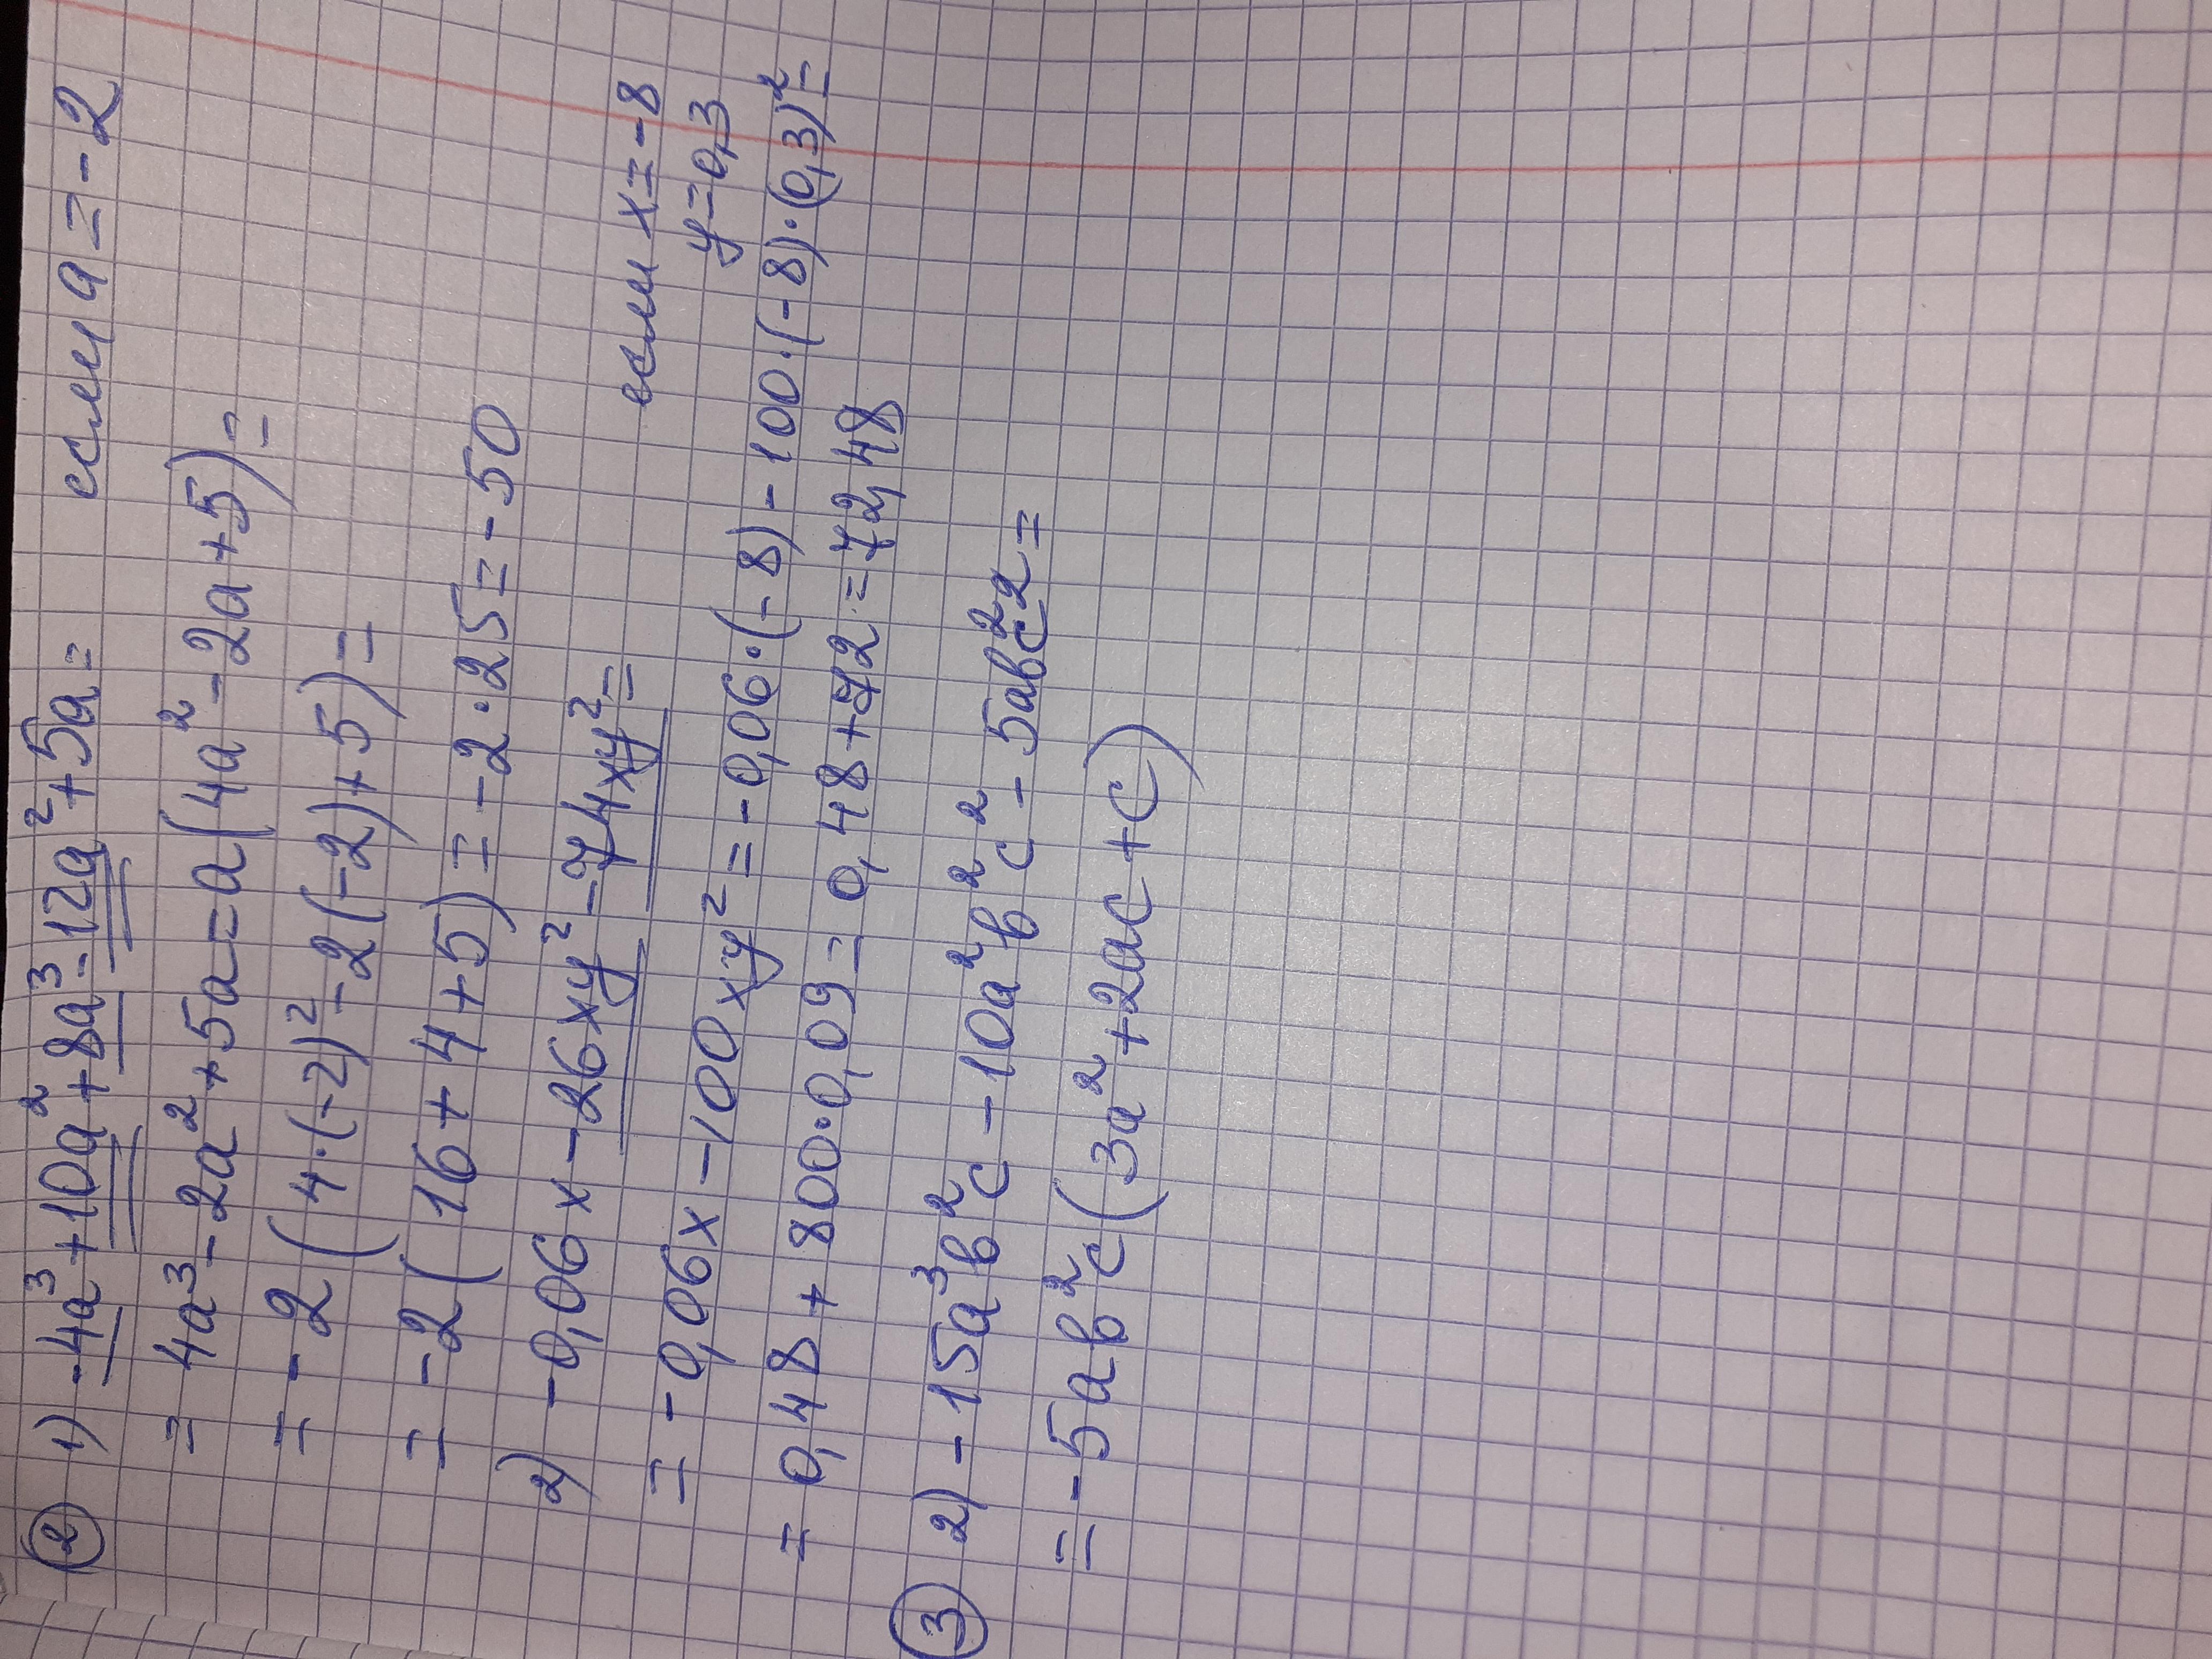 ② 1) -4a³+10a²+8a³-12a²+5a= если a=-2
= 4a³-2a²+5a=a(4a²-2a+5)=
= -2(4·(-2)²-2(-2)+5)=
= -2(16+4+5)=-2·25=-50
2) -0,06x-26xy²-74xy²= если x=-8
y=0,3
= -0,06x-100xy²=-0,06·(-8)-100·(-8)·(0,3)²=
= 0,48+800·0,09=0,48+72=72,48
③ 2) -15a³b²c-10a²b²c²-5ab²c²=
= -5ab²c(3a²+2ac+c)